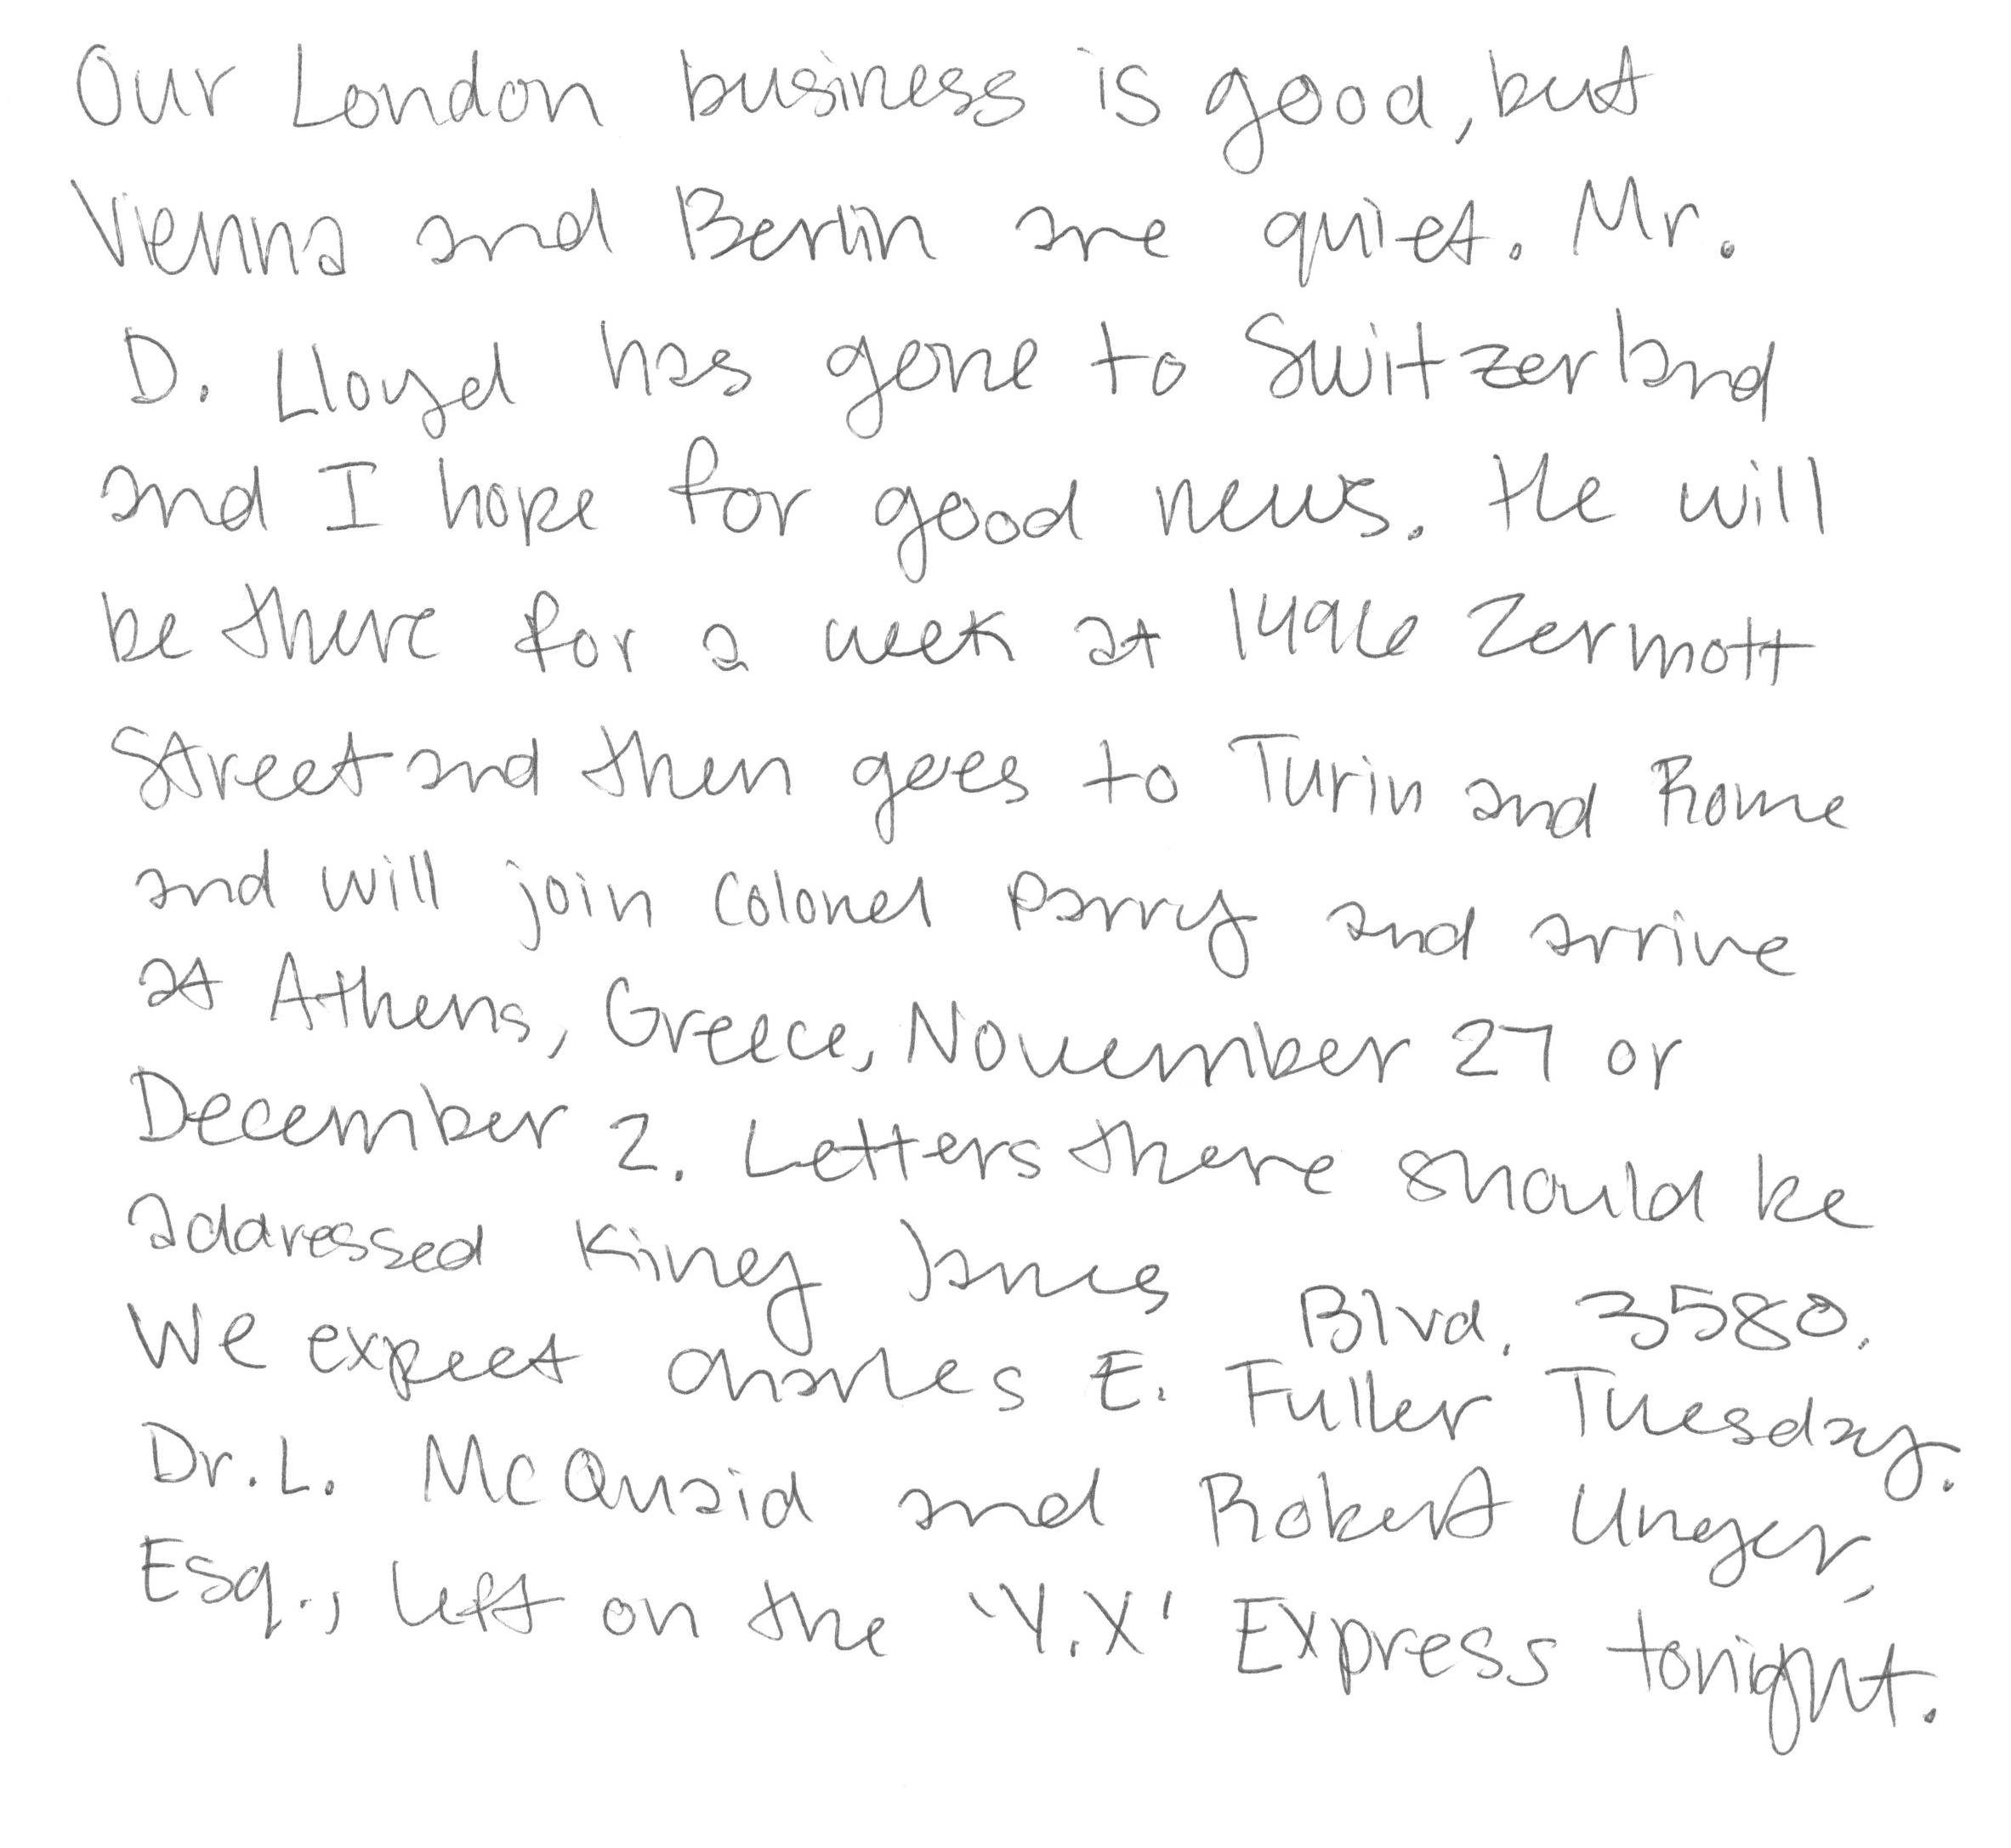 Our London business is good, but
Vienna and Berlin are quiet. Mr.
D. Lloyd has gone to Switzerland
and I hope for good news. He will
be there for a week at 1496 Zermott
Street and then goes to Turin and Rome
and will join Colonel Parry and arrive
at Athens, Greece, November 27 or
December 2. Letters there should be
addressed King James Blvd. 3580.
We expect Charles E. Fuller Tuesday.
Dr. L. McQuaid and Robert Unger,
Esq., left on the 'Y.X' Express tonight.